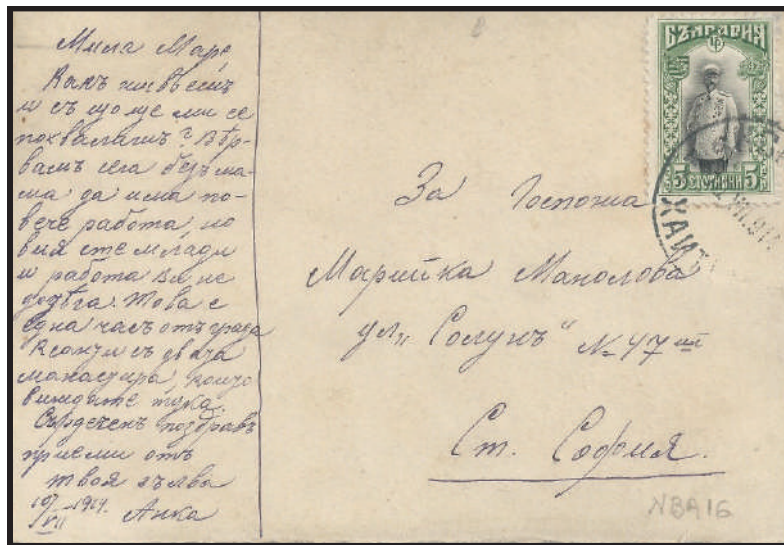 Мила Маре,
Какъ живѣешъ
и съ що ще ми се
похвалишъ? Вѣр-
вамъ сега безъ ма-
ма да има по-
вече работа, но
вий сте млади
и работа ви не
додѣва. Това е
една часть отъ града
Ксанти съ двата
манастира, които
виждате тука.
Сърдеченъ поздравъ
приеми отъ
твоя зълва
Анка
10/VII 1914.
БЪЛГАРИЯ
5 СТОТИНКИ 5
За Госпожа
Марийка Манолова
ул. „Солунъ“ № 47
Ст. София.
NBA16